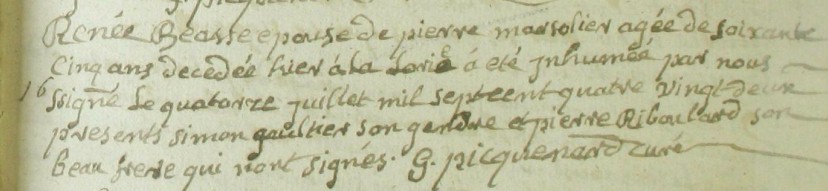 Renée Beasse epouse de pierre marsolier agée de soixante
Cinq ans decedée hier á la Lorie á eté jnhumée par nous
16 ssigne Le quatorze juillet mil sept cent quatre Vingt deux
presents simon gaultier son gendre et pierre Riboulard son
beau frere qui nont signés. G. picquenard curé